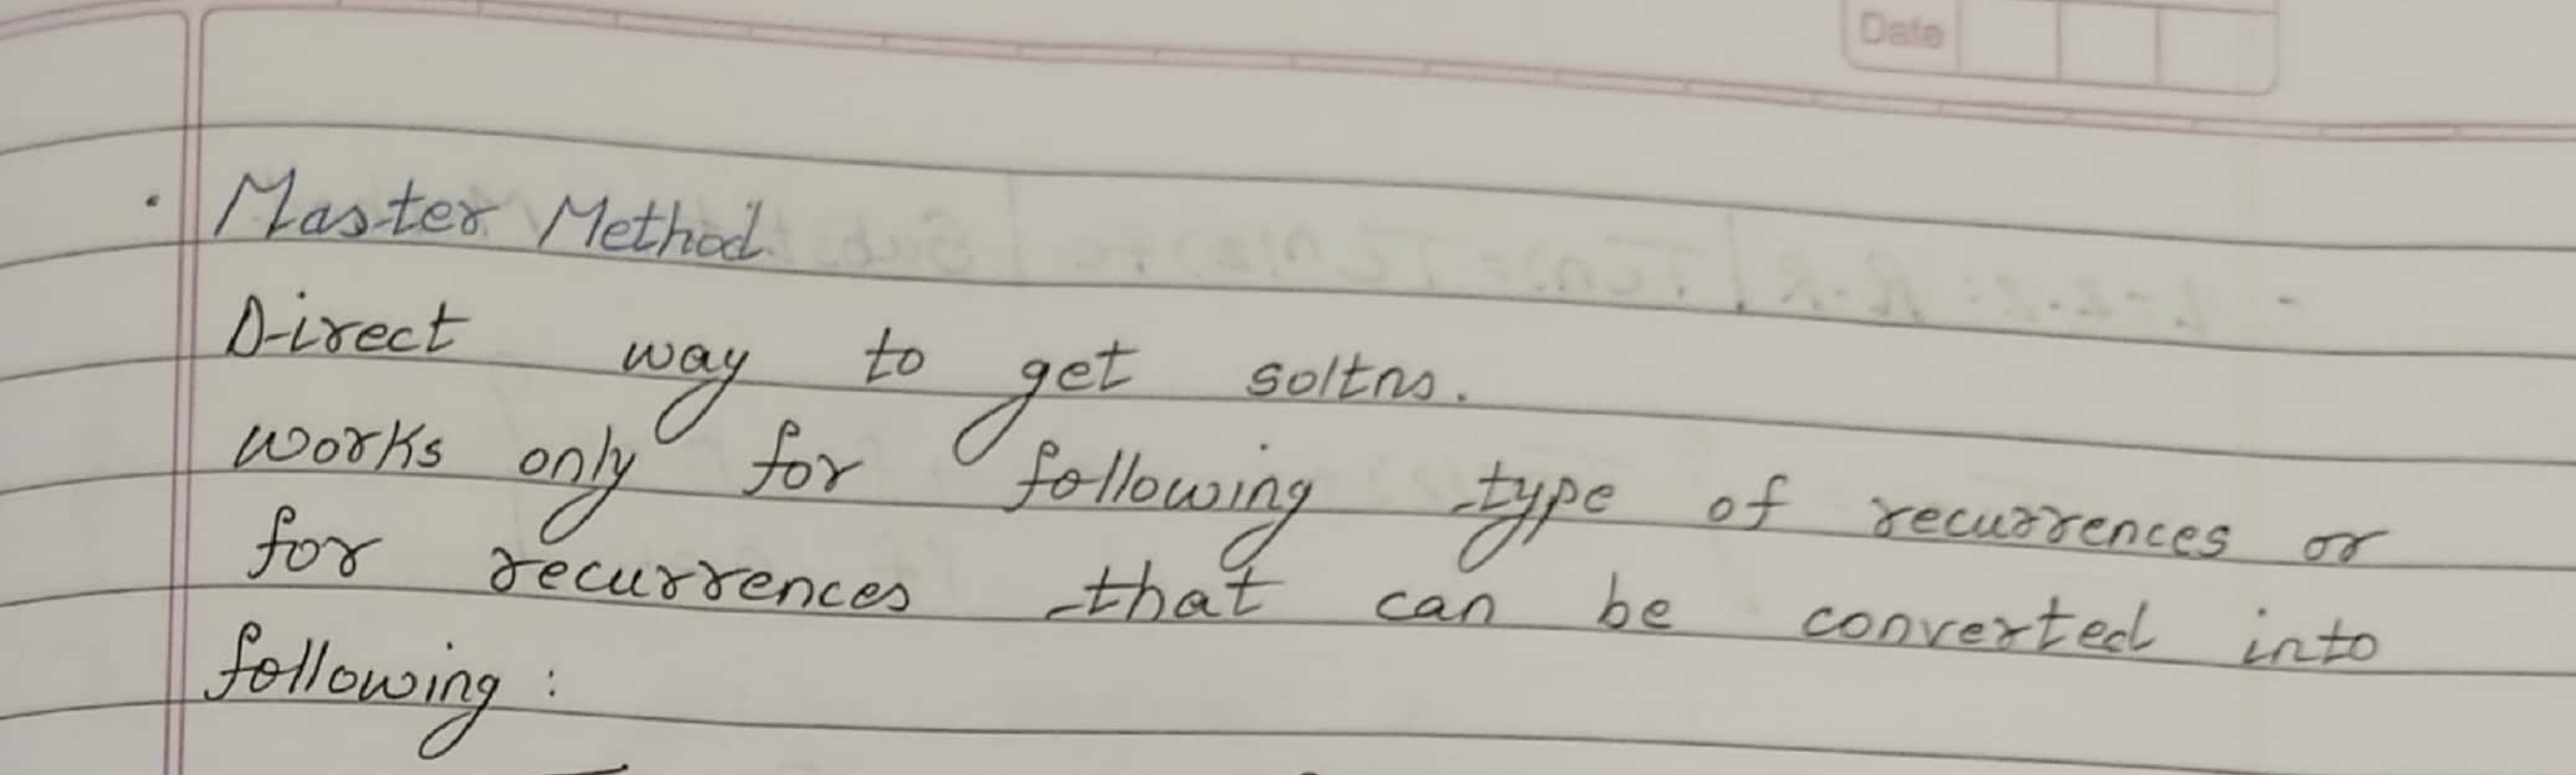 Date
· Master Method
Direct way to get soltns.
works only for following type of recurrences or
for recurrences that can be converted into
following :